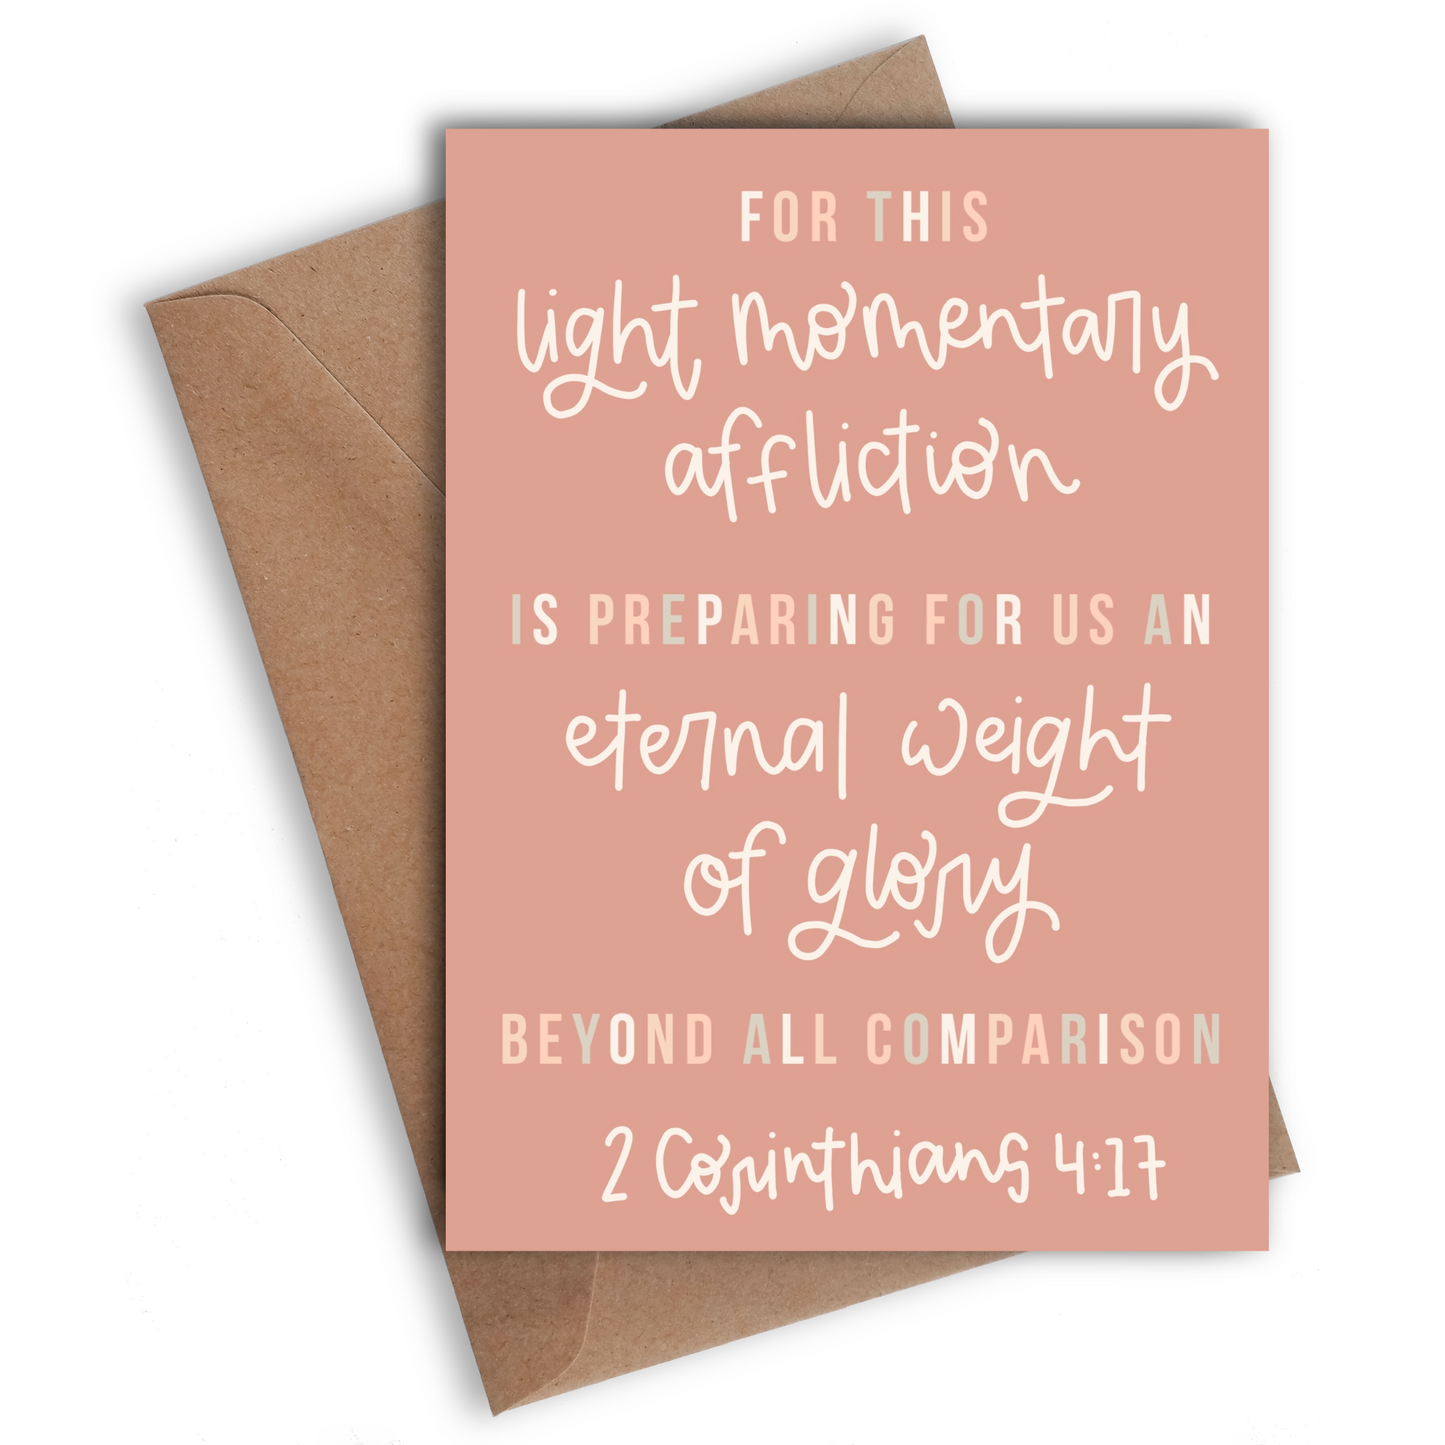 FOR THIS
light momentary
affliction
IS PREPARING FOR US AN
eternal weight
of glory
BEYOND ALL COMPARISON
2 Corinthians 4:17